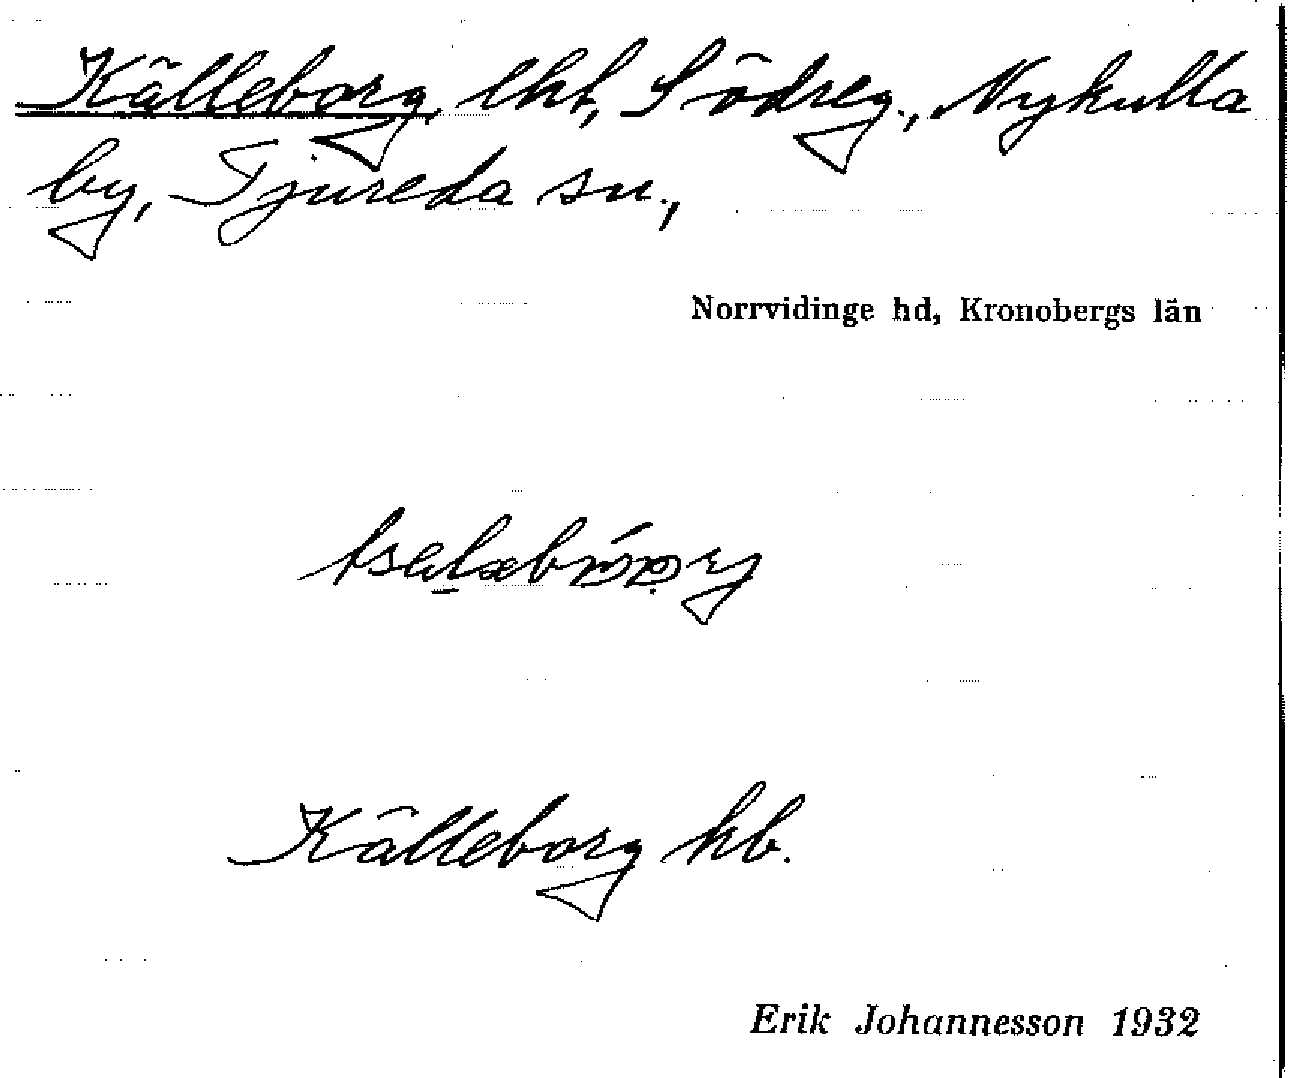 Källeborg, lht, Södreg., Nykulla
by, Tjureda sn.,
Norrvidinge hd, Kronobergs län
Källeborg hb.
Erik Johannesson 1932